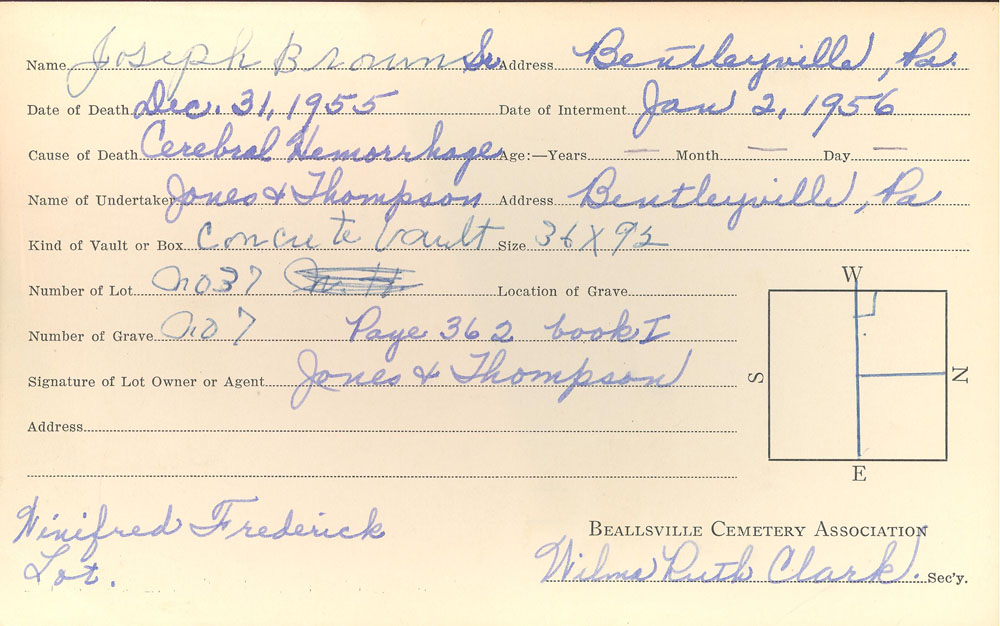 Name Joseph Brown Sr Address Bentleyville, Pa.
Date of Death Dec. 31, 1955 Date of Interment Jan 2, 1956
Cause of Death Cerebral Hemorrhage Age:—Years — Month — Day —
Name of Undertaker Jones & Thompson Address Bentleyville, Pa
Kind of Vault or Box Concrete Vault Size 36 X 92
Number of Lot no 37 Location of Grave
Number of Grave no 7 Page 362 book I
Signature of Lot Owner or Agent Jones & Thompson
Address
W
S
N
E
Winifred Frederick
Lot.
BEALLSVILLE CEMETERY ASSOCIATION
Wilma Ruth Clark. Sec'y.